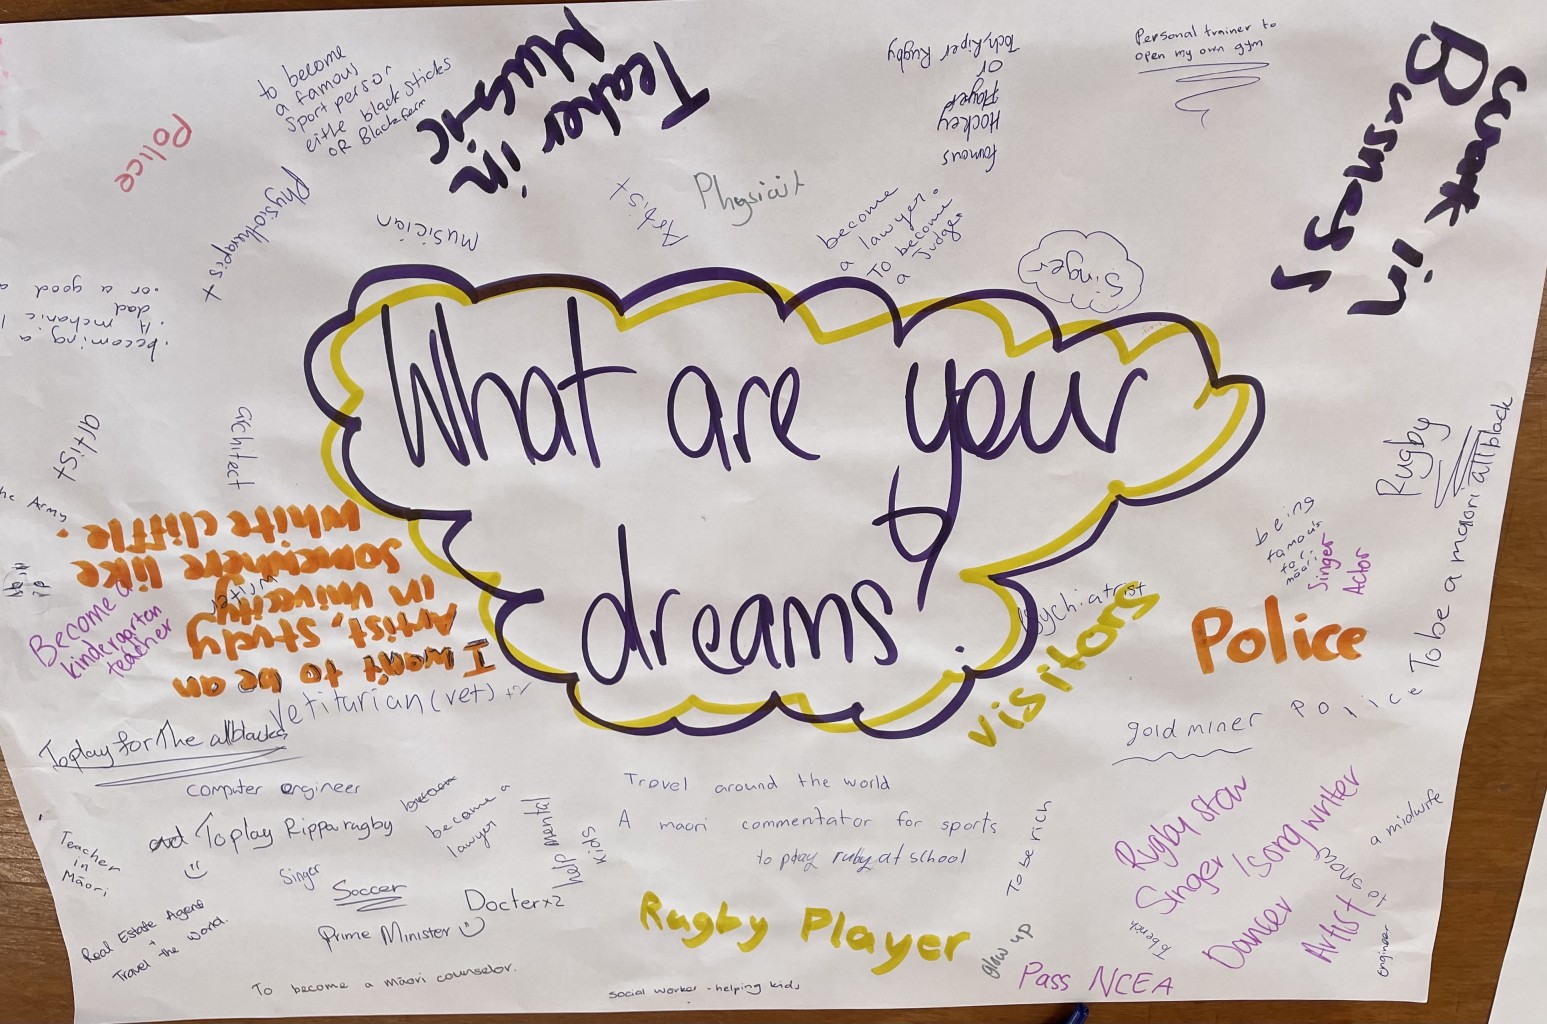 What are your
dreams?
to become
a famous
sport person
eithe black sticks
OR Blackferm
Police
Physiotherapist
Teaher in
Music
musician
Artist
Physicist
famous
Hockey
Player
or
Toch,Riper Rugby
become
a lawyer.
To become
a judge.
Singer
Personal trainer to
open my own gym
work in
Busnes!
becoming a
mchanic
dad
or a good
artist
architect
he Army
I want to be an
Artist, study
in univecity
somewhere like
white cliffle.
writer
Become a
kindergarten
teacher
Vetiturian (vet)
To play for The allblacks
computer engineer
and To play Rippa rugby
become a
lawyer
help mental
kids
Teacher
in
Māori
Singer
Soccer
Docter x2
Prime Minister
Real Estate Agent
+
Travel the world.
To become a māori counselor.
Travel around the world
A maori commentator for sports
to play ruby at school
Rugby Player
social worker - helping kids
To be rich
Glow up
Pass NCEA
Psychiatrist
visitors
Police
being
famous
for
māori
Singer
Actor
Rugby
To be a maori allblack
Police
gold miner
Rugby star
Singer / song writer
Dancer
Artist
a midwife
engineer